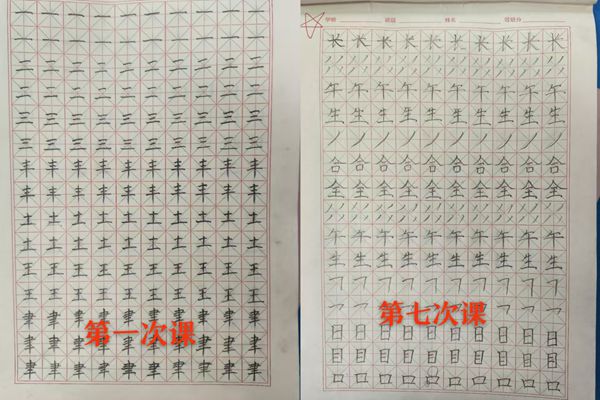 一 一 一 一 一 一 一 一 一 一
一 一 一 一 一 一 一 一 一 一
二 二 二 二 二 二 二 二 二 二
二 二 二 二 二 二 二 二 二 二
三 三 三 三 三 三 三 三 三 三
三 三 三 三 三 三 三 三 三 三
丰 丰 丰 丰 丰 丰 丰 丰 丰 丰
丰 丰 丰 丰 丰 丰 丰 丰 丰 丰
土 土 土 土 土 土 土 土 土 土
土 土 土 土 土 土 土 土 土 土
王 王 王 王 王 王 王 王 王 王
王 王 王 王 王 王 王 王 王 王
聿 聿 聿 聿 聿 聿 聿 聿 聿 聿
第一次课
聿 聿 聿 聿 聿 聿 聿 聿 聿 聿
聿 聿 聿 聿 聿 聿 聿 聿 聿 聿
学校 班级 姓名
长 长 长 长 长 长 长 长 长 长
午 午 午 午 午 午 午 午 午 午
生 生 生 生 生 生 生 生 生 生
丿 丿 丿 丿 丿 丿 丿 丿 丿 丿
合 合 合 合 合 合 合 合 合 合
全 全 全 全 全 全 全 全 全 全
午 午 午 午 午 午 午 午 午 午
生 生 生 生 生 生 生 生 生 生
第七次课
日 日 日 日 日 日 日 日 日 日
目 目 目 目 目 目 目 目 目 目
口 口 口 口 口 口 口 口 口 口